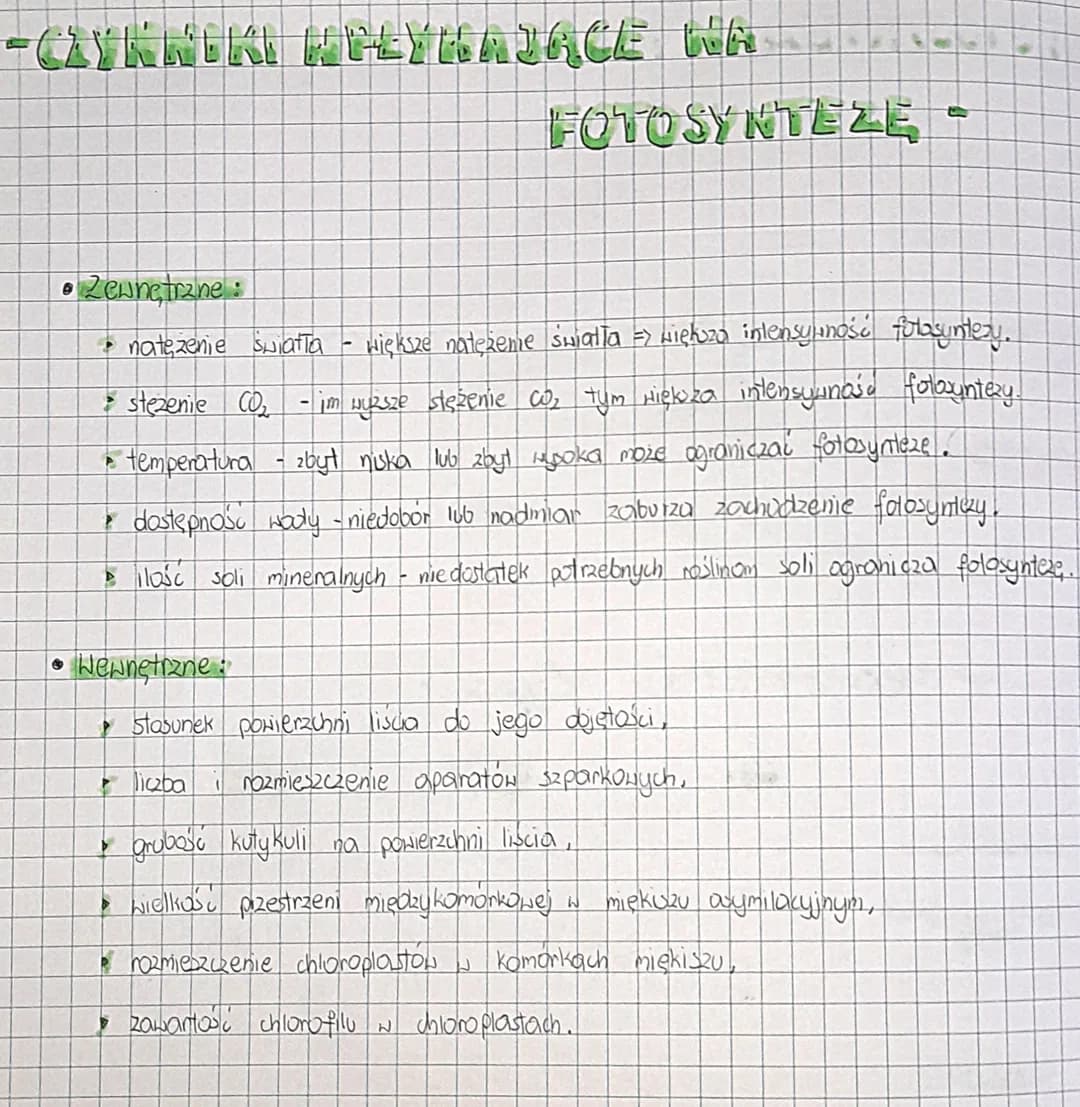 -CZYNNIKI WPŁYWAJĄCE NA
FOTOSYNTEZĘ -
• Zewnętrzne:
natężenie światła - większe natężenie światła => większa intensywność fotosyntezy.
stężenie CO₂ - im wyższe stężenie CO₂ tym większa intensywność fotosyntezy.
temperatura - zbyt niska lub zbyt wysoka może ograniczać fotosyntezę.
dostępność wody - niedobór lub nadmiar zaburza zachodzenie fotosyntezy.
ilość soli mineralnych - niedostatek potrzebnych roślinom soli ogranicza fotosyntezę.
• Wewnętrzne:
stosunek powierzchni liścia do jego objętości,
liczba i rozmieszczenie aparatów szparkowych,
grubość kutykuli na powierzchni liścia,
wielkość przestrzeni międzykomórkowej w miękiszu asymilacyjnym,
rozmieszczenie chloroplastów w komórkach miękiszu,
zawartość chlorofilu w chloroplastach.